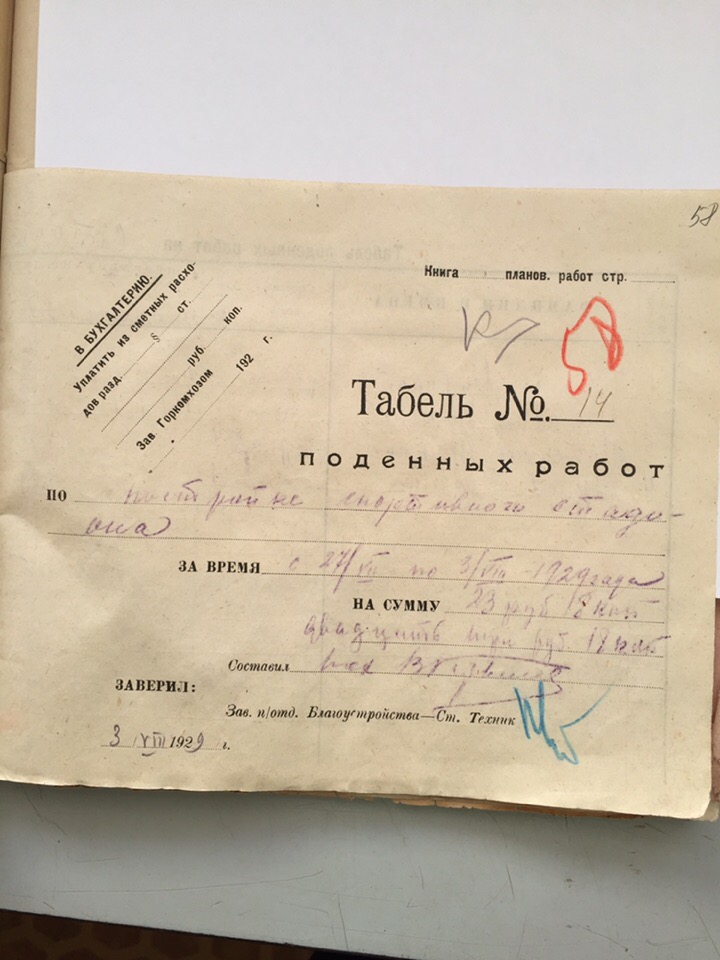 58
В БУХГАЛТЕРИЮ.
Уплатить из сметных расхо-
дов разд. § ст.
руб. коп.
Зав Горкомхозом 192 г.
Книга планов. работ стр.
58
Табель №. 14
поденных работ
по постройке спортивного стади-
она
ЗА ВРЕМЯ с 27/VII по 3/VIII - 1929 года
НА СУММУ 23 руб 18 коп
двадцать три руб. 18 коп
Составил
ЗАВЕРИЛ:
Зав. п/отд. Благоустройства—Ст. Техник
3 VIII 1929 г.